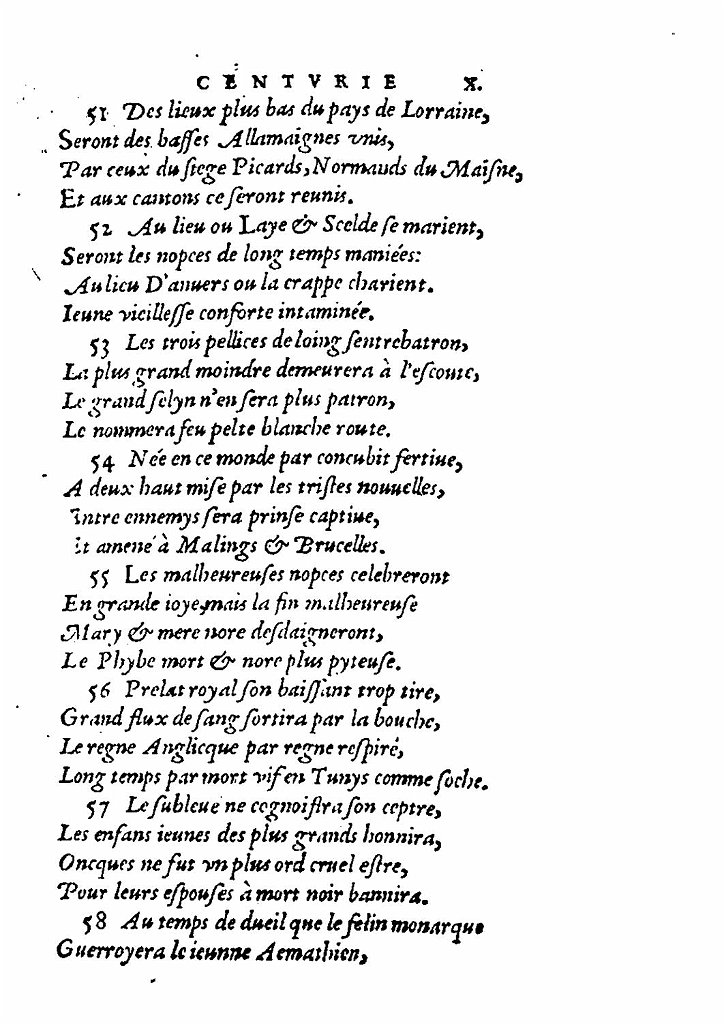 CENTVRIE X.
51 Des lieux plus bas du pays de Lorraine,
Seront des basses Allamaignes vnis,
Par ceux du siege Picards, Normauds du Maisne,
Et aux cantons ce seront reunis.
52 Au lieu ou Laye & Scelde se marient,
Seront les nopces de long temps maniées:
Au lieu D'anuers ou la crappe charient.
Ieune vieillesse conforte intaminée.
53 Les trois pellices de loing sentrebatron,
La plus grand moindre demeurera à l'escoute,
Le grand selyn n'en sera plus patron,
Le nommera feu pelte blanche route.
54 Née en ce monde par concubit fertiue,
A deux haut mise par les tristes nouuelles,
Intre ennemys sera prinse captiue,
Et amené à Malings & Brucelles.
55 Les malheureuses nopces celebreront
En grande ioye, mais la fin malheureuse
Mary & mere nore desdaigneront,
Le Phybe mort & nore plus pyteuse.
56 Prelat royal son baissant trop tire,
Grand flux de sang sortira par la bouche,
Le regne Anglicque par regne respiré,
Long temps par mort vif en Tunys comme soche.
57 Le subleue ne cognoistra son ceptre,
Les enfans ieunes des plus grands honnira,
Oncques ne fut vn plus ord cruel estre,
Pour leurs espouses à mort noir bannira.
58 Au temps de dueil que le felin monarque
Guerroyera le ieunne Aemathien,